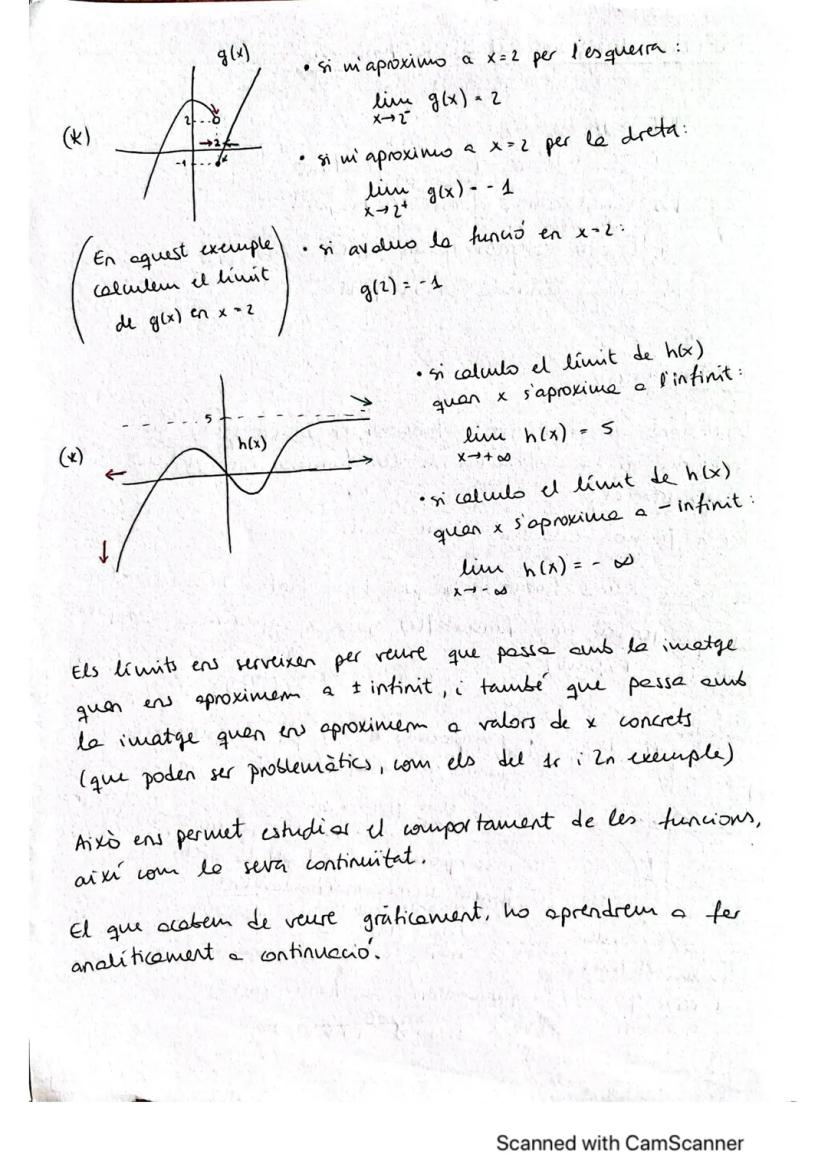 g(x)
(*)
2
2
-1
• si m'aproximo a x=2 per l'esquerra :
lim g(x) = 2
x→2⁻
• si m'aproximo a x=2 per la dreta:
lim g(x) = -1
x→2⁺
• si avaluo la funció en x=2:
g(2) = -1
(En aquest exemple
calculem el límit
de g(x) en x=2)
(*)
5
h(x)
• si calculo el límit de h(x)
quan x s'aproxima a l'infinit:
lim h(x) = 5
x→+∞
• si calculo el límit de h(x)
quan x s'aproxima a -infinit:
lim h(x) = -∞
x→-∞
Els límits ens serveixen per veure que passa amb la imatge
quan ens aproximem a ± infinit, i també que passa amb
la imatge quan ens aproximem a valors de x concrets
(que poden ser problemàtics, com els del 1r i 2n exemple)
Això ens permet estudiar el comportament de les funcions,
així com la seva continuïtat.
El que acabem de veure gràficament, ho aprendrem a fer
analíticament a continuació.
Scanned with CamScanner